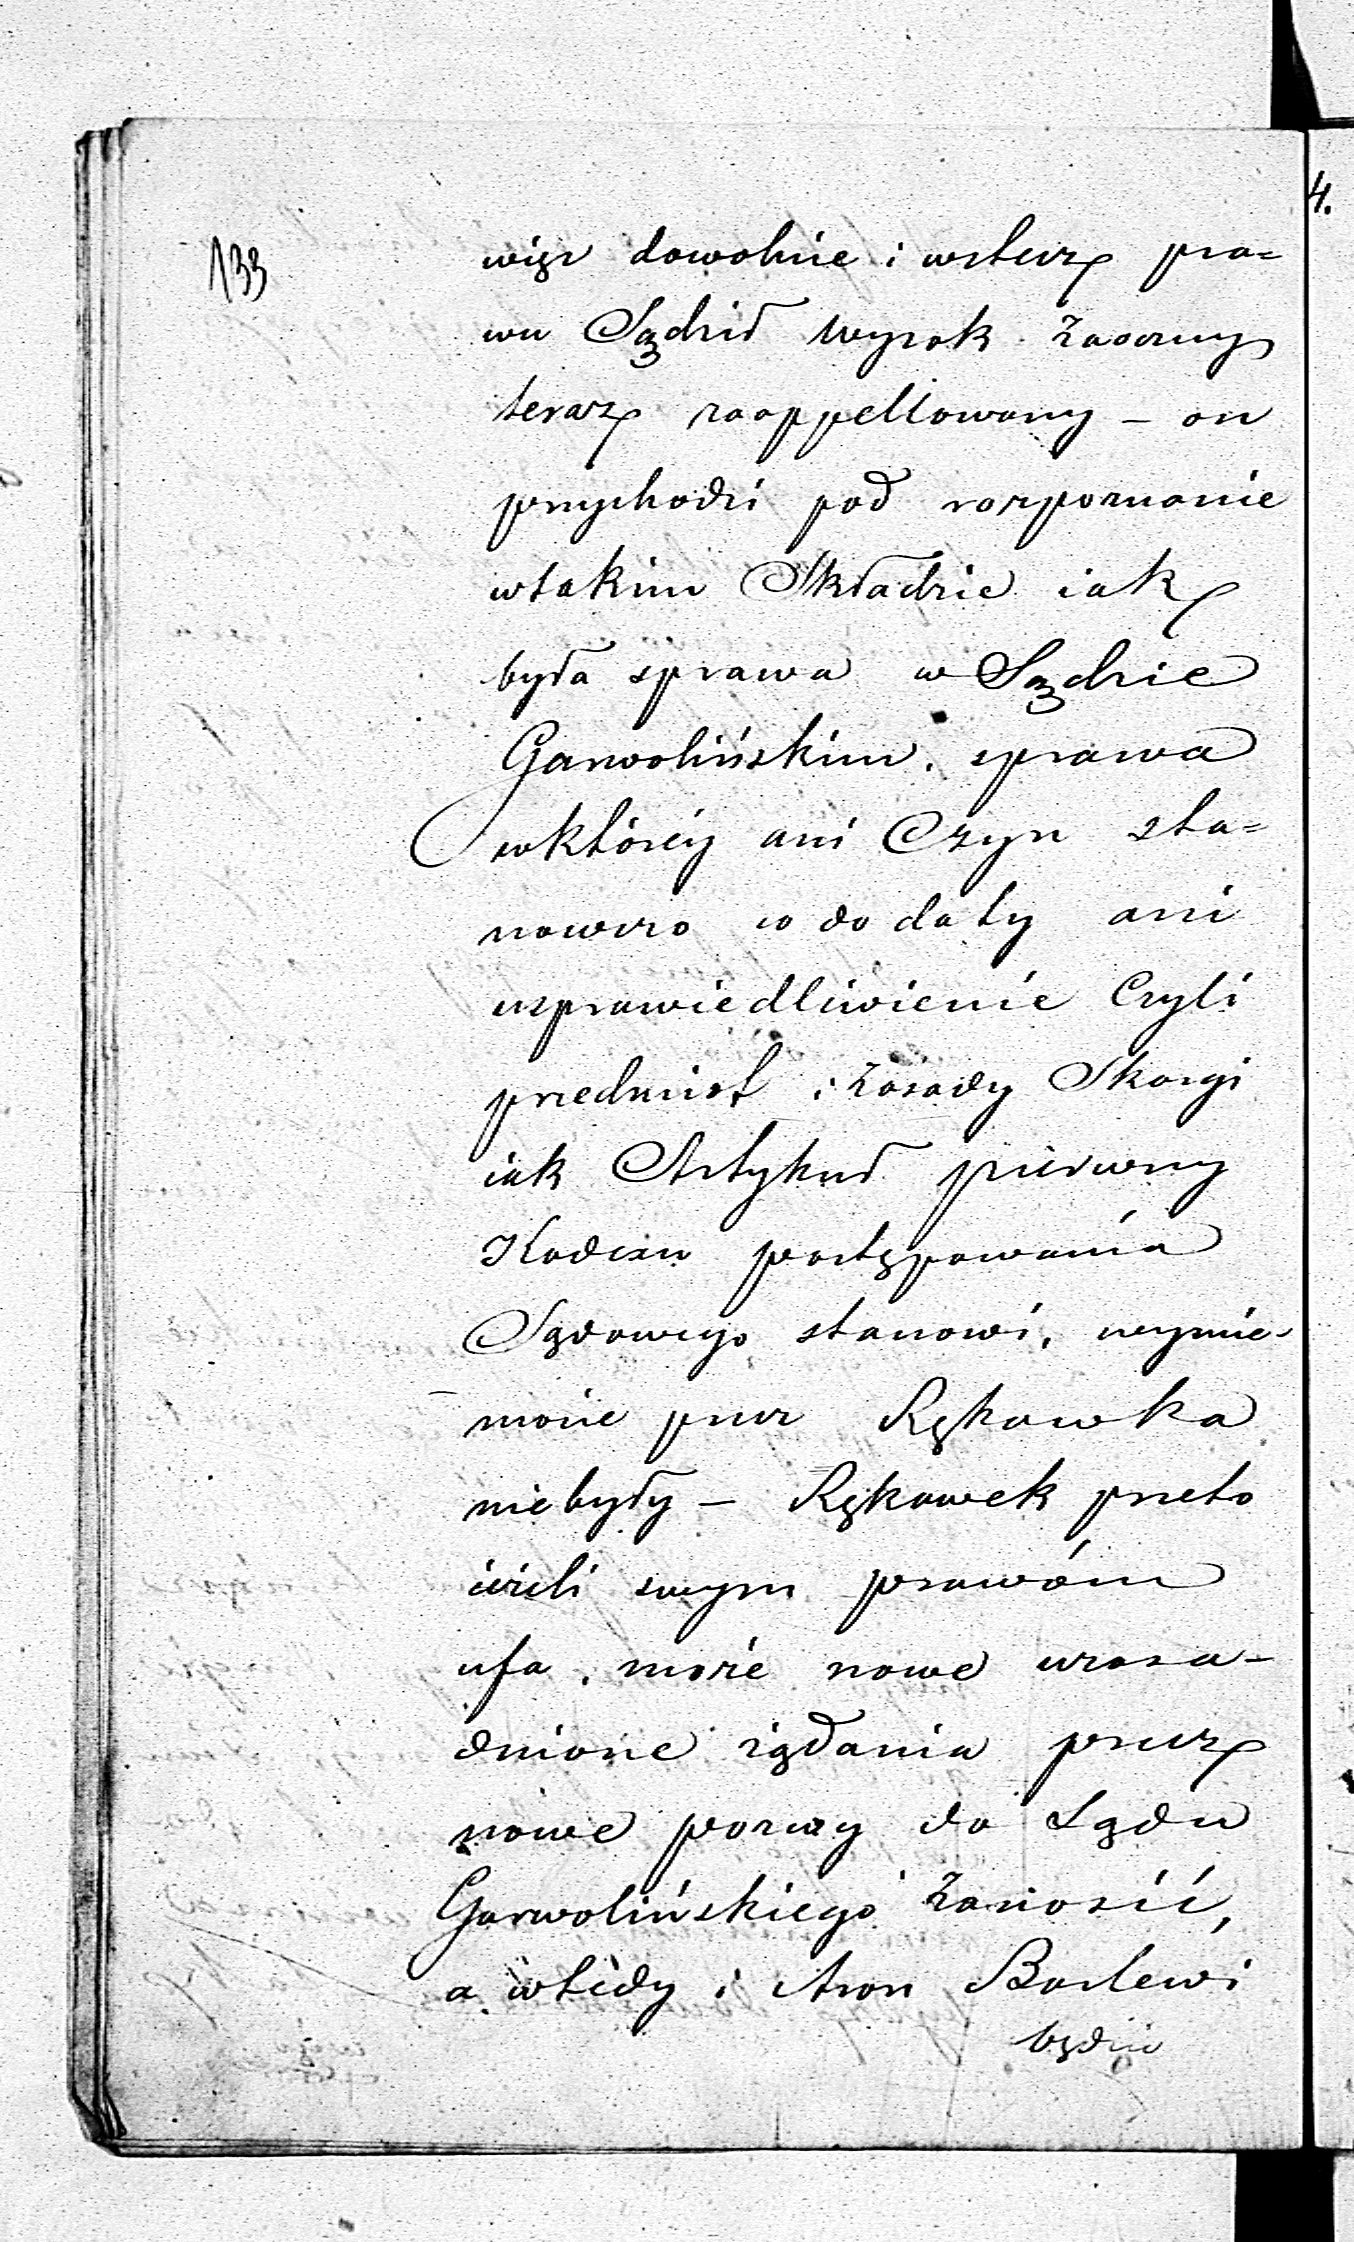 133
więc dowolnie i wstecz pra=
wu Sądził Wyrok zaoczny
teraz zaappellowany – on
przychodzi pod rozpoznanie
wtakim Składzie iak
była sprawa w Sądzie
Garwolińskim. sprawa
wktóréy ani Czyn sta=
nowczo co do daty ani
usprawiedliwienie Czyli
przedmiot i zasady Skargi
iak Artykuł pierwszy
Kodexu postępowania
Sądowego stanowi, wymie-
nione przez Rękawka
niebyły – Rękawek przeto
ieżeli swym prawóm
ufa, może nowe uzasa-
dnione żądania przez
nowe pozwy do Sądu
Garwolińskiego zanosić,
a wtedy i Aron Boslewi
będzie
4.